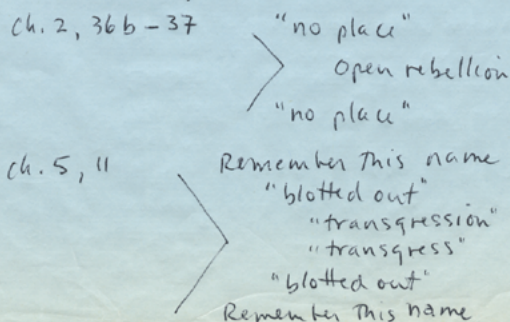 ch. 2, 36b-37 "no place"
open rebellion
"no place"
ch. 5, 11 Remember this name
"blotted out"
"transgression"
"transgress"
"blotted out"
Remember this name